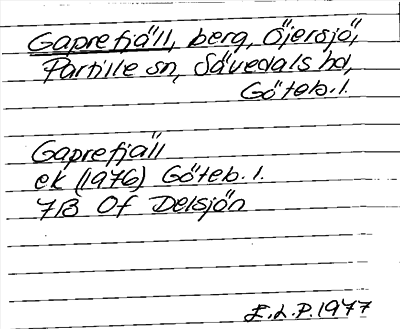 Gaprefjäll, berg, Öjersjö,
Partille sn, Sävedals hd,
Göteb. l.
Gaprefjäll
ek (1976) Göteb. l.
7B 0f Delsjön
E.L.P. 1977